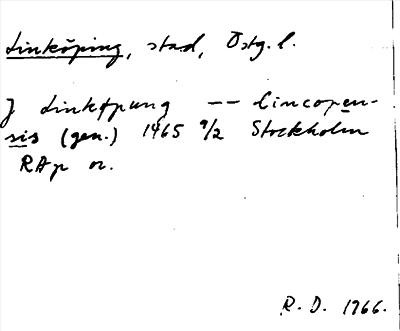 Linköping, stad, Östg.l.
J Linkøpung -- Lincopen-
sis (gen.) 1465 9/2 Stockholm
RAp or.
R. D. 1966.